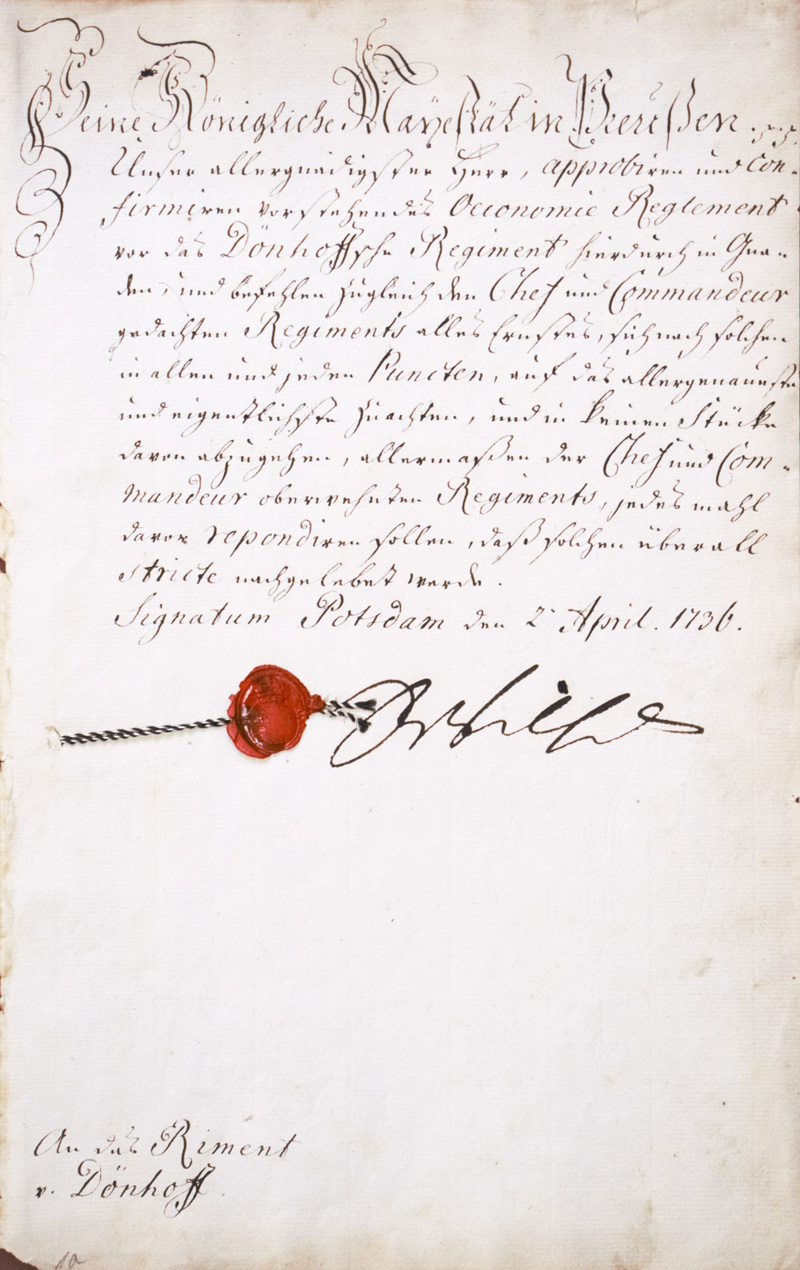 Seine Königliche Mayestät in Preußen. pp.
Unser allergnädigster Herr, approbiren und Con-
firmiren vorstehendes Oeconomie Reglement
vor das Dönhoffsche Regiment hierdurch in Gna-
den, und befehlen zugleich den Chef und Commandeur
gedachten Regiments alles Ernstes, sich nach solchen
in allen und jeden Puncten, auf das allergenaueste
und eigentlichste zu achten, und in keinen Stücke
davon abzugehen, allermaßen der Chef und Com-
mandeur oberwehnten Regiments, jedes mahl
davor repondiren sollen, daß solchen überall
stricte nachgelebet werde.
Signatum Potsdam den 2. April. 1736.
An das Riment
v. Dönhoff